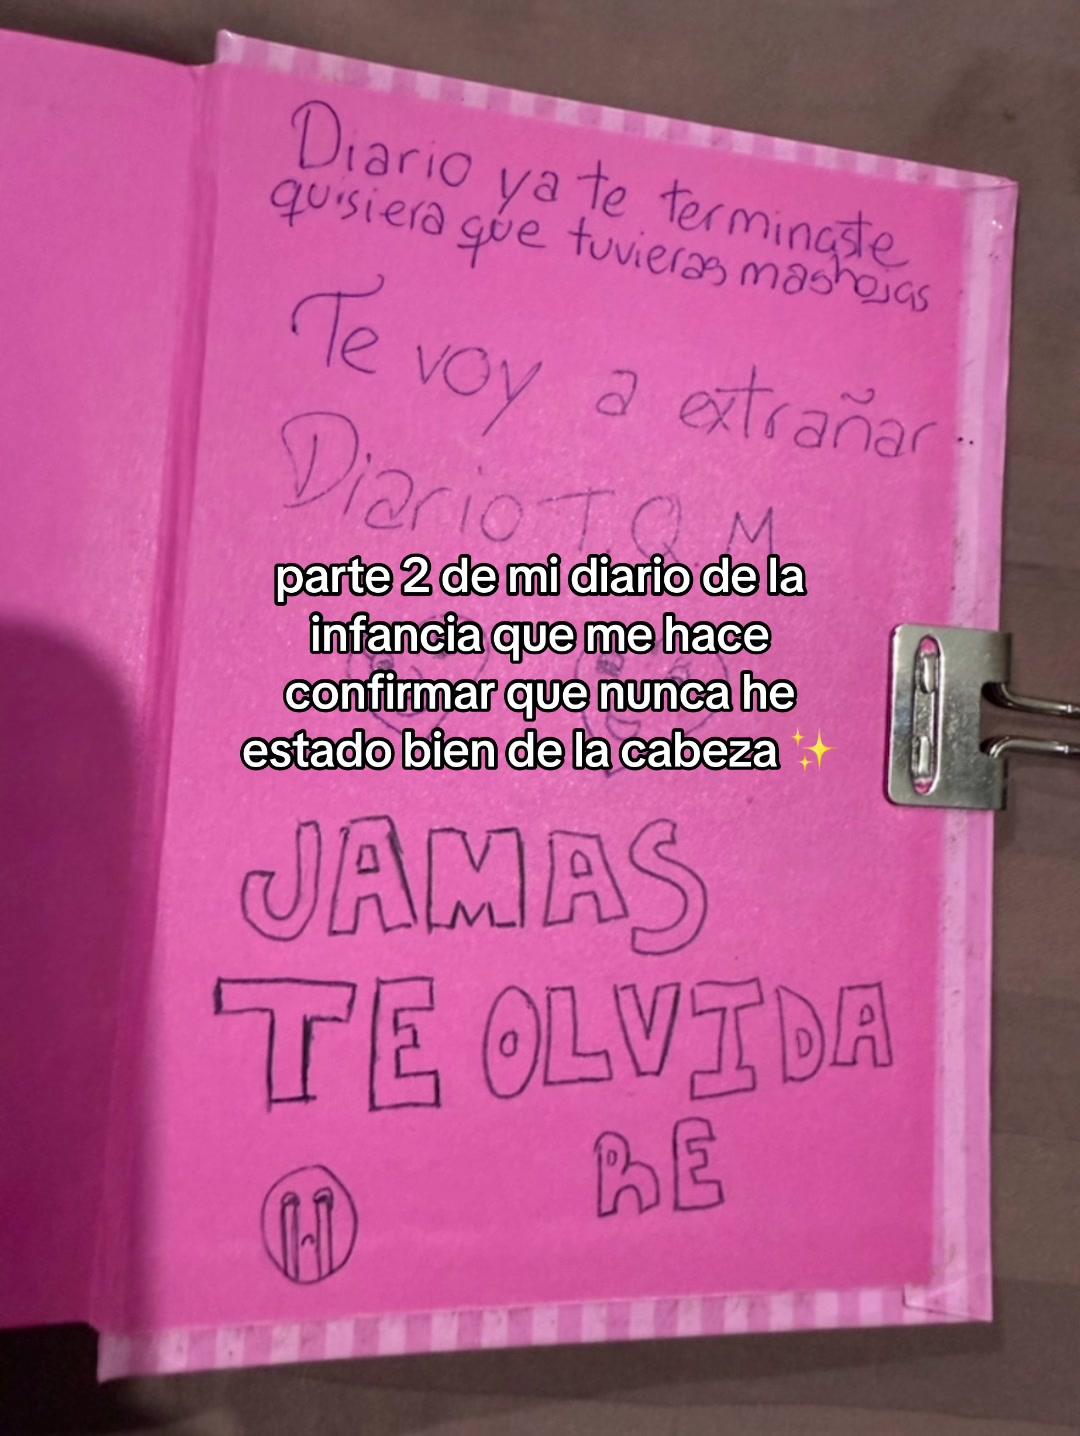 Diario ya te terminaste
quisiera que tuvieras mas hojas
Te voy a extrañar..
Diario T Q M
parte 2 de mi diario de la
infancia que me hace
confirmar que nunca he
estado bien de la cabeza ✨
JAMAS
TE OLVIDA
RE